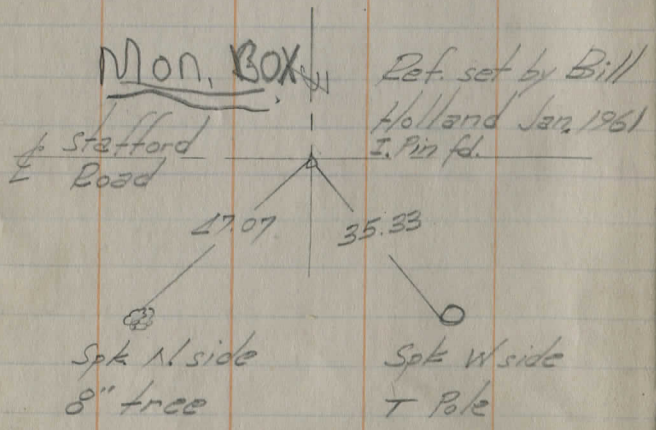 Mon. BOX
Ref. set by Bill
Holland Jan. 1961
I. Pin fd.
Stafford
℄ Road
47.07
35.33
Spk N side
8" tree
Spk W side
T Pole